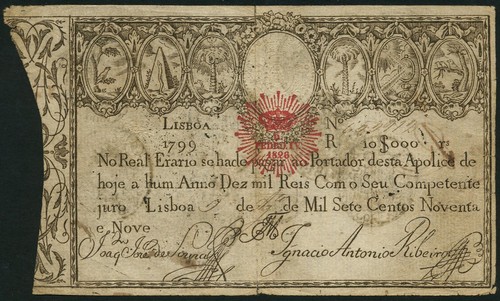 LISBOA Nº
1799 R 10$000 rˢ
PEDRO IV
1826
No Real Erario se hade pagar ao Portador desta Apolice de
hoje a hum Anno Dez mil Reis Com o Seu Competente
juro Lisboa de de Mil Sete Centos Noventa
e Nove
Ignacio Antonio Ribeiro